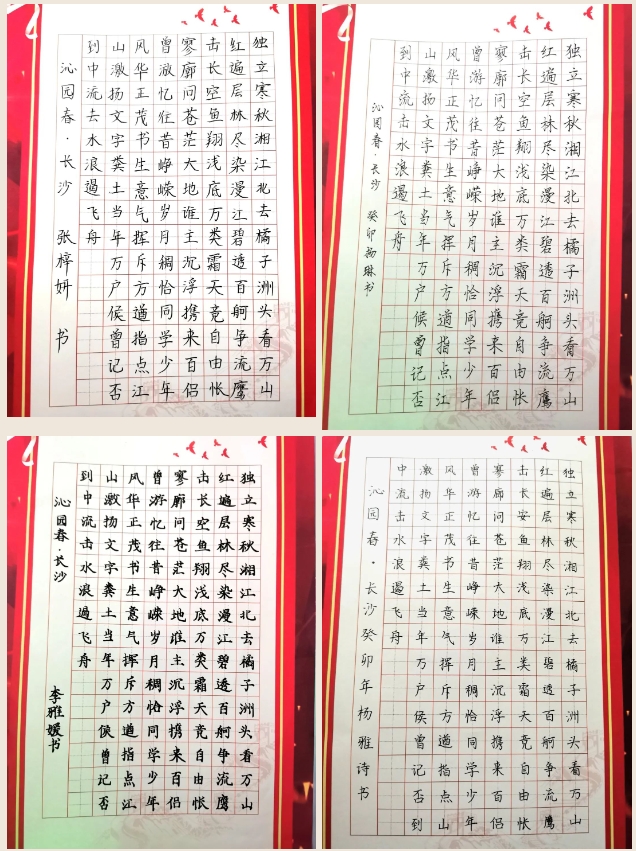 独立寒秋湘江北去橘子洲头看万山
红遍层林尽染漫江碧透百舸争流鹰
击长空鱼翔浅底万类霜天竞自由怅
寥廓问苍茫大地谁主沉浮携来百侣
曾游忆往昔峥嵘岁月稠恰同学少年
风华正茂书生意气挥斥方遒指点江
山激扬文字粪土当年万户候曾记否
到中流去水浪遏飞舟
沁园春·长沙 张梓妍 书
独立寒秋湘江北去橘子洲头看万山
红遍层林尽染漫江碧透百舸争流鹰
击长空鱼翔浅底万类霜天竞自由怅
寥廓问苍茫大地谁主沉浮携来百侣
曾游忆往昔峥嵘岁月稠恰同学少年
风华正茂书生意气挥斥方遒指点江
山激扬文字粪土当年万户候曾记否
到中流击水浪遏飞舟
沁园春·长沙 癸卯杨琳书
独立寒秋湘江北去橘子洲头看万山
红遍层林尽染漫江碧透百舸争流鹰
击长空鱼翔浅底万类霜天竞自由怅
寥廓问苍茫大地谁主沉浮携来百侣
曾游忆往昔峥嵘岁月稠恰同学少年
风华正茂书生意气挥斥方遒指点江
山激扬文字粪土当年万户侯曾记否
到中流击水浪遏飞舟
沁园春·长沙 李雅媛书
独立寒秋湘江北去橘子洲头看万山
红遍层林尽染漫江碧透百舸争流鹰
击长安鱼翔浅底万类霜天竞自由怅
寥廓问苍茫大地谁主沉浮携来百侣
曾游忆往昔峥嵘岁月稠恰同学少年
风华正茂书生意气挥斥方遒指点山
激扬文字粪土当年万户侯曾记否到
中流击水浪遏飞舟
沁园春·长沙癸卯年杨雅诗书